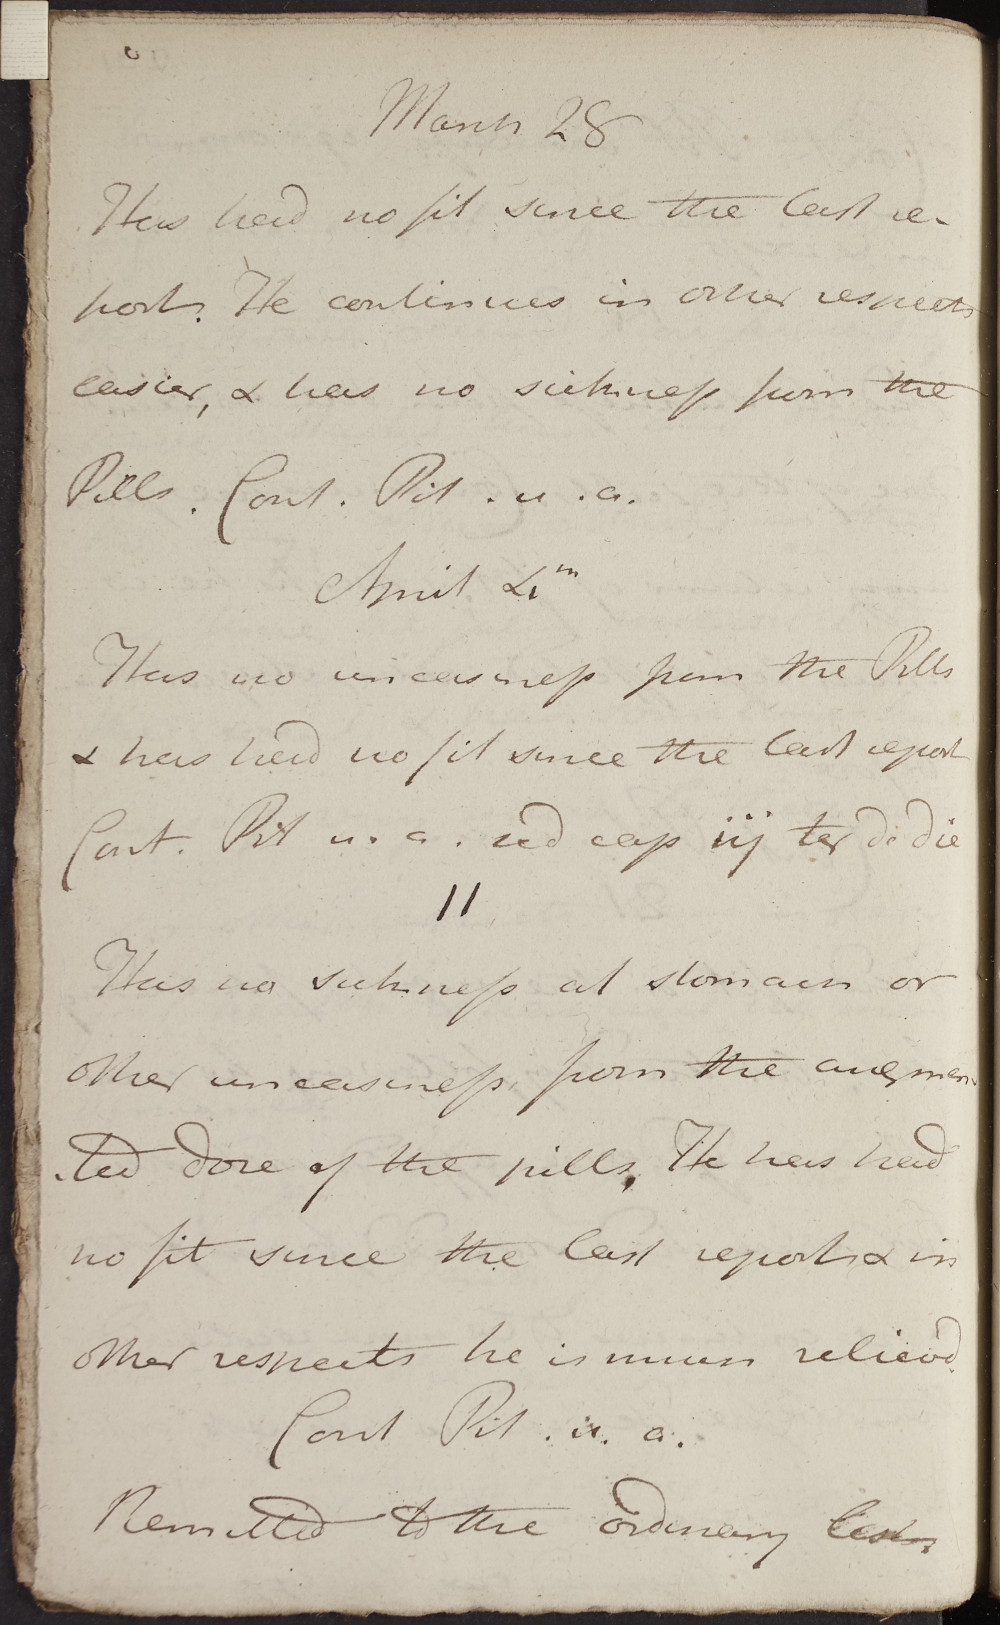 March 28
Has had no fit since the last re-
port. He continues in other respects
easier, & has no sickness from the
Pills. Cont. Pil. u. a.
April 4th
Has no uneasiness from the Pills
& has had no fit since the last report
Cont. Pil u. a. sed cap iij ter de die
11
Has no sickness at stomach or
other uneasiness from the augmen-
-ted dose of the pills, He has had
no fit since the last report & in
other respects he is much reliev'd.
Cont Pil. u. a.
Remitted to the ordinary